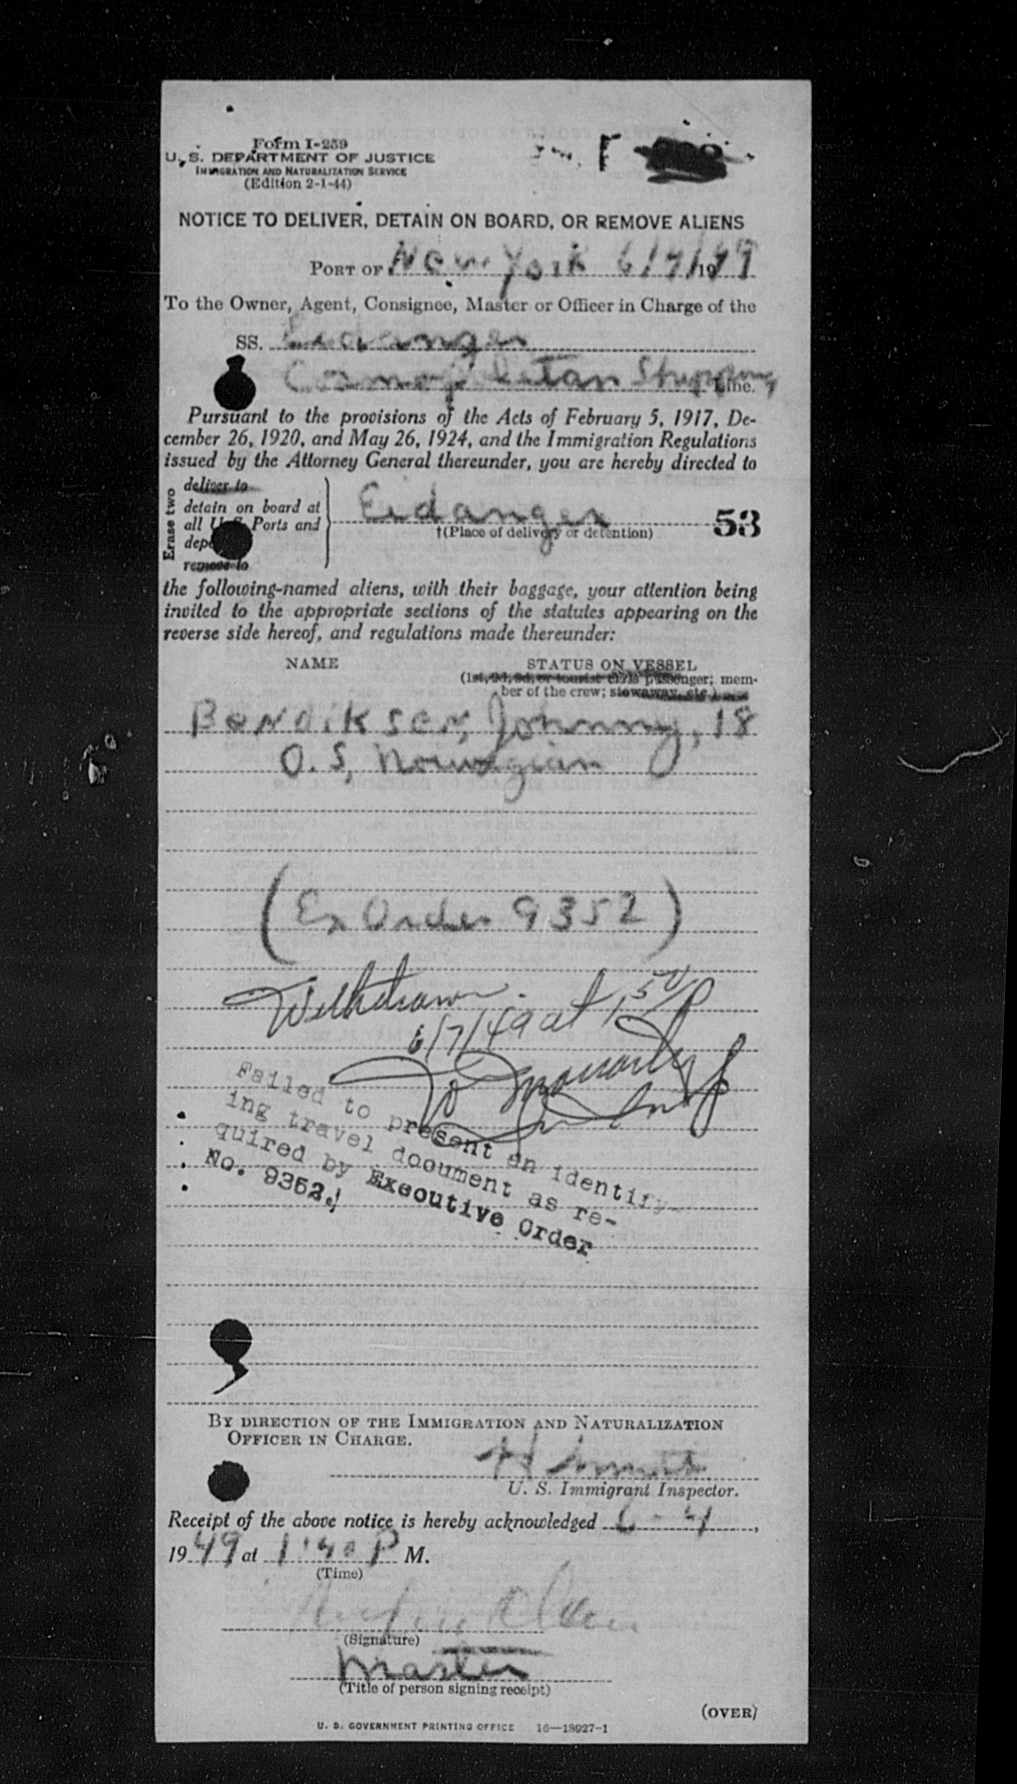 Form I-259
U. S. DEPARTMENT OF JUSTICE
IMMIGRATION AND NATURALIZATION SERVICE
(Edition 2-1-44)
NOTICE TO DELIVER, DETAIN ON BOARD, OR REMOVE ALIENS
PORT OF New York 6/7/1949
To the Owner, Agent, Consignee, Master or Officer in Charge of the
SS. Eidanger
Cosmopolitan Shipping Line.
Pursuant to the provisions of the Acts of February 5, 1917, De-
cember 26, 1920, and May 26, 1924, and the Immigration Regulations
issued by the Attorney General thereunder, you are hereby directed to
Erase two
deliver to
detain on board at
all U.S. Ports and
remove to
Eidanger
†(Place of delivery or detention)
53
the following-named aliens, with their baggage, your attention being
invited to the appropriate sections of the statutes appearing on the
reverse side hereof, and regulations made thereunder:
NAME STATUS ON VESSEL
(1st, 2d, 3d, or tourist class passenger; mem-
ber of the crew; stowaway, etc.)
Bendiksen, Johnny, 18
O. S, Norwegian
(Ex Order 9352)
Withdrawn.
6/7/49 at 1:50 P
Failed to present an identify-
ing travel document as re-
quired by Executive Order
No. 9352.
BY DIRECTION OF THE IMMIGRATION AND NATURALIZATION
OFFICER IN CHARGE.
U. S. Immigrant Inspector.
Receipt of the above notice is hereby acknowledged 6-4,
1949 at 1:40 P M.
(Time)
(Signature)
Master
(Title of person signing receipt)
(OVER)
U. S. GOVERNMENT PRINTING OFFICE 16—18927-1